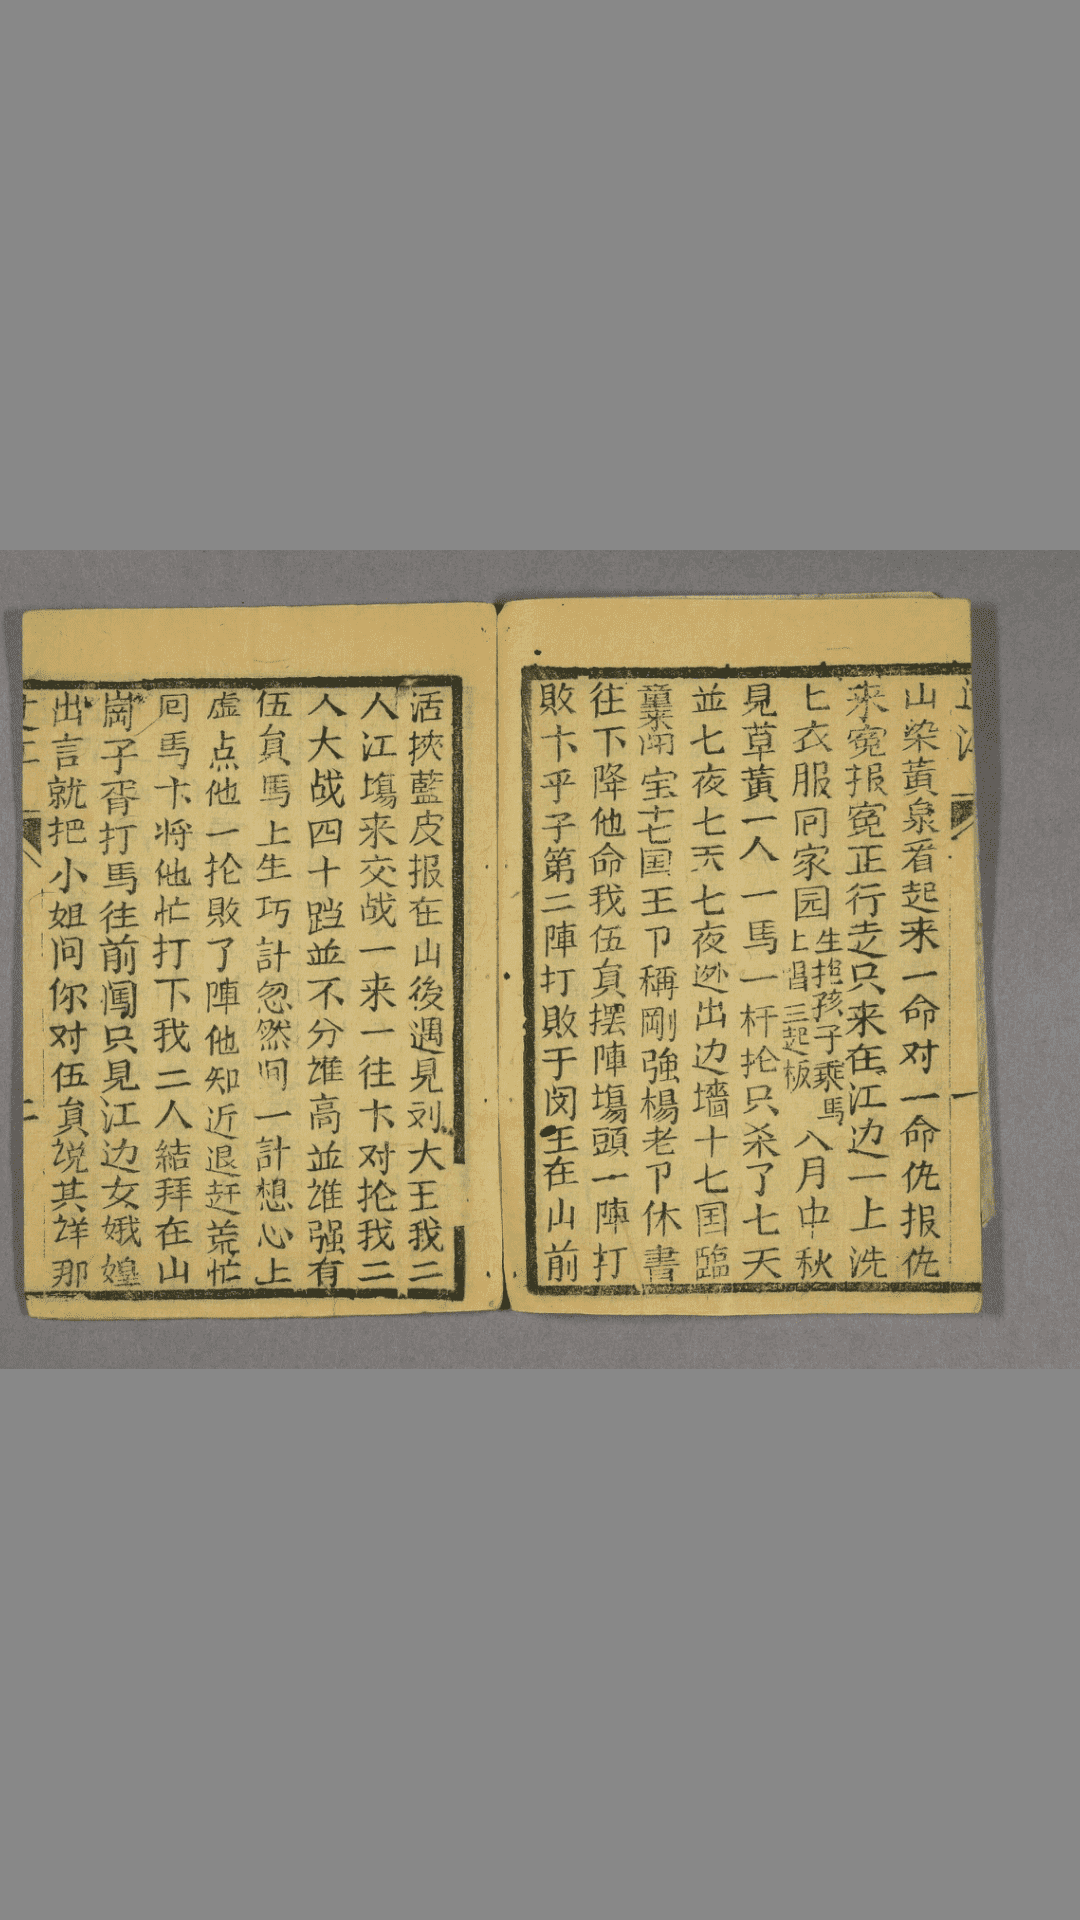 山染黄泉看起来一命对一命仇报仇
来寃报寃正行走只来在江边一上洗
上衣服回家园生抱孩子乘馬上唱三起板八月中秋
見草黄一人一馬一杆抡只杀了七天
並七夜七天七夜迯出边墙十七国臨
童末闹宝十七国王卩稱剛強楊老卩休書
往下降他命我伍員摆陣塲頭一陣打
敗卞乎子第二陣打敗于闵王在山前
活挾藍皮报在山後遇見刘大王我二
人江塲来交战一来一往卞对抡我二
人大战四十䠀並不分誰高並誰强有
伍員馬上生巧計忽然间一計想心上
虚点他一抡敗了陣他知近退赶荒忙
回馬卡将他忙打下我二人結拜在山
崗子胥打馬往前闯只見江边女娥媓
出言就把小姐问你对伍員说其详那
二